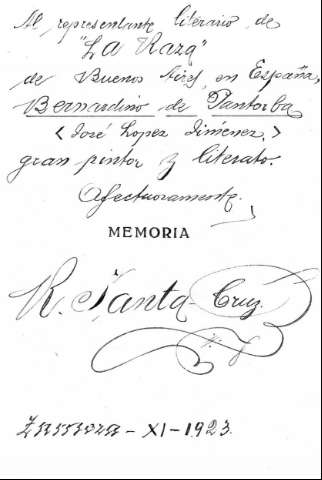 Al representante literario de
"La Raza"
de Buenos Aires, en España,
Bernardino de Pantorba
<José Lopez Jiménez,>
gran pintor y literato.
Afectuosamente.
MEMORIA
R. Santa-Cruz
Zamora - XI - 1.923.